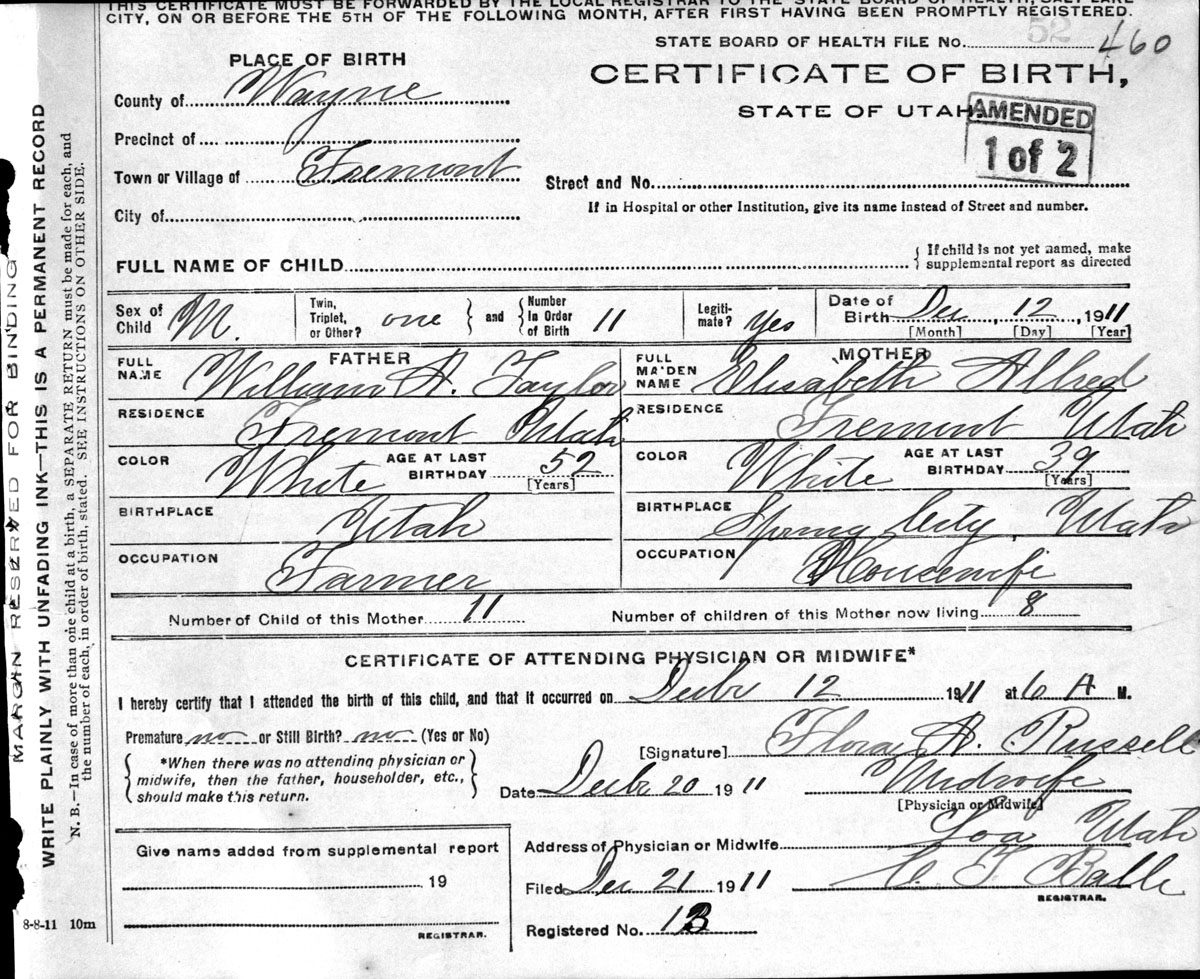 THIS CERTIFICATE MUST BE FORWARDED BY THE LOCAL REGISTRAR TO THE STATE BOARD OF HEALTH, SALT LAKE
CITY, ON OR BEFORE THE 5TH OF THE FOLLOWING MONTH, AFTER FIRST HAVING BEEN PROMPTLY REGISTERED.
52
STATE BOARD OF HEALTH FILE No. 460
PLACE OF BIRTH
CERTIFICATE OF BIRTH,
County of Wayne
STATE OF UTAH.
AMENDED
1 of 2
Precinct of
Town or Village of Fremont
Street and No.
City of
If in Hospital or other Institution, give its name instead of Street and number.
FULL NAME OF CHILD
{ If child is not yet named, make
supplemental report as directed
Sex of Child M.
Twin, Triplet, or Other? one } and { Number In Order of Birth 11
Legiti-mate? Yes
Date of Birth Dec, 12, 1911
[Month] [Day] [Year]
FATHER
FULL NAME William A. Taylor
MOTHER
FULL MAIDEN NAME Elisabeth Allred
RESIDENCE Fremont Utah
RESIDENCE Fremont Utah
COLOR White AGE AT LAST BIRTHDAY 52 [Years]
COLOR White AGE AT LAST BIRTHDAY 39 [Years]
BIRTHPLACE Utah
BIRTHPLACE Spring City, Utah
OCCUPATION Farmer
OCCUPATION Housewife
Number of Child of this Mother 11
Number of children of this Mother now living 8
CERTIFICATE OF ATTENDING PHYSICIAN OR MIDWIFE*
I hereby certify that I attended the birth of this child, and that it occurred on Decbr 12 1911 at 6 A M.
Premature no or Still Birth? no (Yes or No)
[Signature] Flora A. Russell
{ *When there was no attending physician or
midwife, then the father, householder, etc.,
should make this return. }
Date Decbr 20 1911
Midwife
[Physician or Midwife]
Address of Physician or Midwife Loa Utah
Give name added from supplemental report
19
REGISTRAR.
Filed Dec 21 1911
REGISTRAR.
Registered No.
8-8-11 10m
MARGIN RESERVED FOR BINDING
WRITE PLAINLY WITH UNFADING INK—THIS IS A PERMANENT RECORD
N. B.—In case of more than one child at a birth, a SEPARATE RETURN must be made for each, and
the number of each, in order of birth, stated. SEE INSTRUCTIONS ON OTHER SIDE.